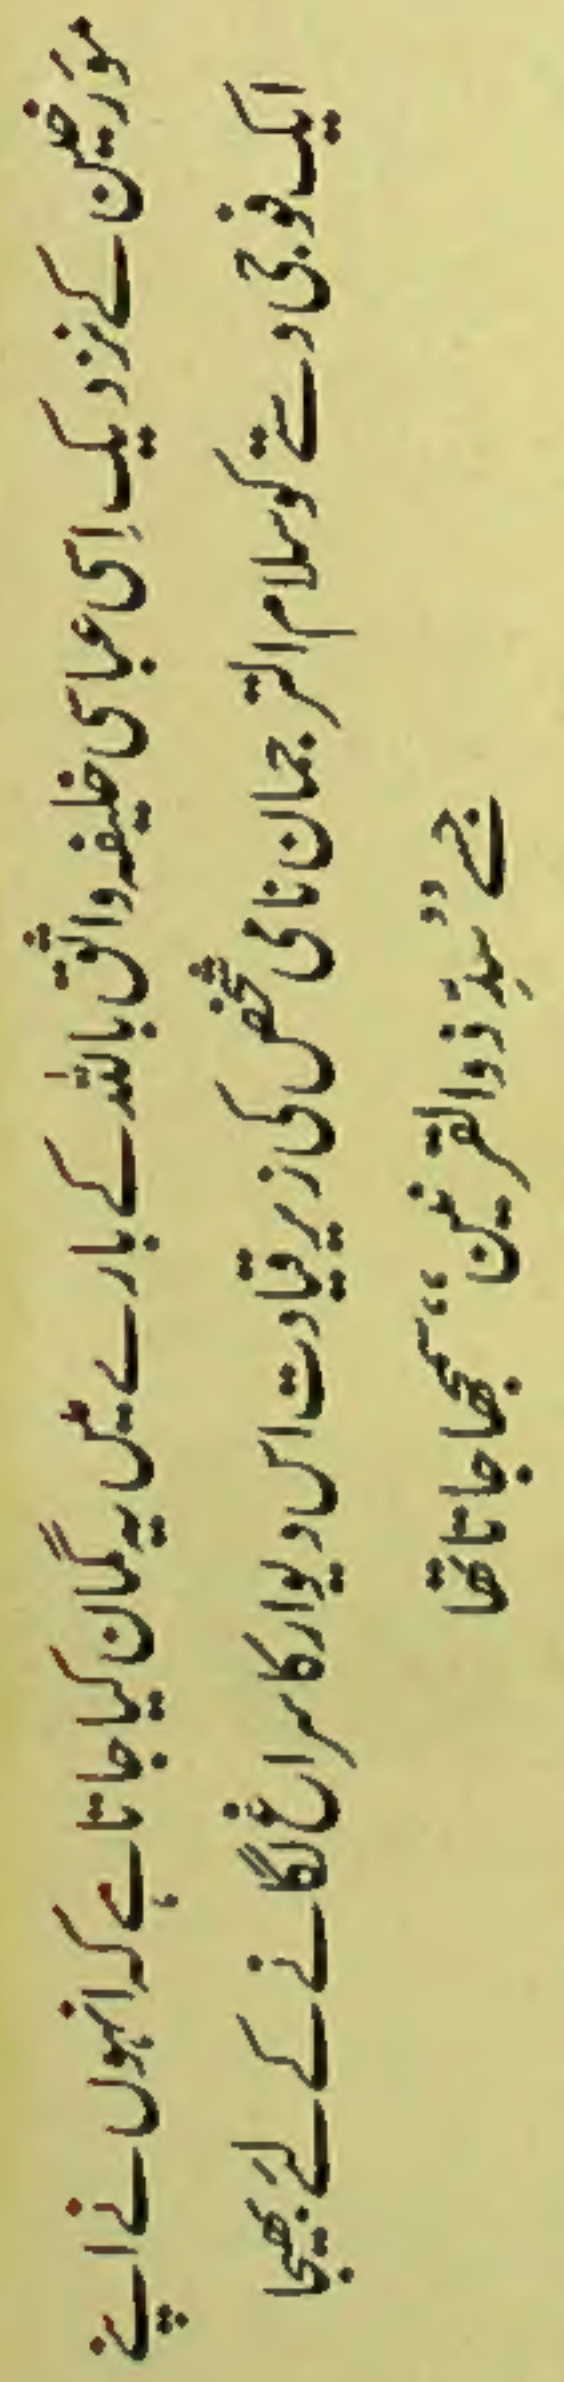 مورخین کے نزدیک اسی عباسی خلیفہ واثق باللہ کے بارے میں یہ گمان کیا جاتا ہے کہ انہوں نے اپنے
ایک فوجی دستے کو سلام الترجمان نامی شخص کی زیر قیادت اس دیوار کا سراغ لگانے کے لئے بھیجا
جسے ”سدِّ ذوالقرنین“ سمجھا جاتا تھا